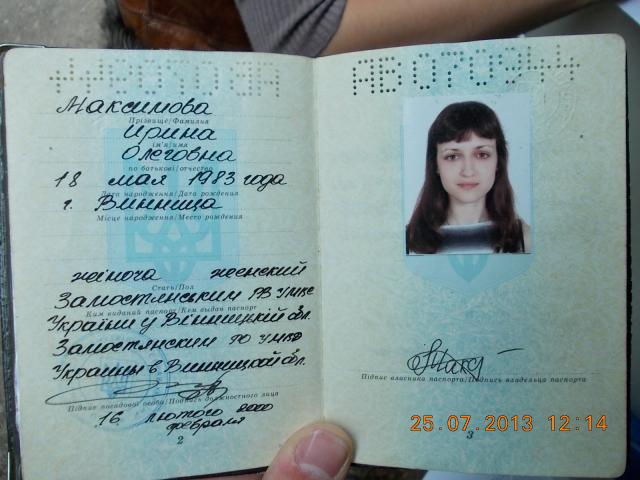 Максимова
Прізвище/Фамилия
Ирина
ім'я/имя
Олеговна
по батькові/отчество
18 мая 1983 года
Дата народження/Дата рождения
г. Винница
Місце народження/Место рождения
жіноча женский
Стать/Пол
Замостянським РВ УМВС
Ким виданий паспорт/Кем выдан паспорт
України у Вінницкій обл.
Замостянским РО УМВД
Украины в Винницкой обл.
Підпис посадової особи/Подпись должностного лица
16 лютого 2000
февраля
2
АВ 070944
Підпис власника паспорта/Подпись владельца паспорта
3
25.07.2013 12:14